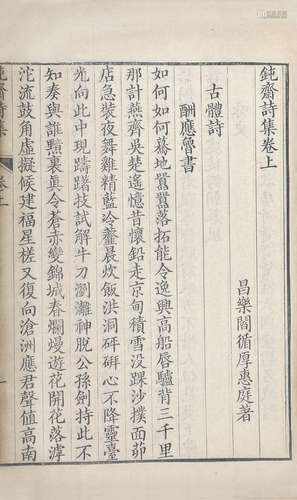 鈍齋詩集卷上
昌樂閻循厚惠庭著
古體詩
酬應魯書
如何如何驀地羈囂落拓能令逸興高船唇驢背三千里
那計燕齊吳楚遙憶昔懷鉛走京甸積雪没踝沙撲面茆
店急裝夜舞雞精藍冷虀晨炊飯洪洞砰砰心不降靈臺
光向此中現躊躇技試解牛刀瀏灕神脫公孫劍持此不
知奏與誰黥裏真令蒼赤變錦城春爛熳遊花開花落滹
沱流鼓角虛擬候建福星槎又復向滄洲應君聲值高南